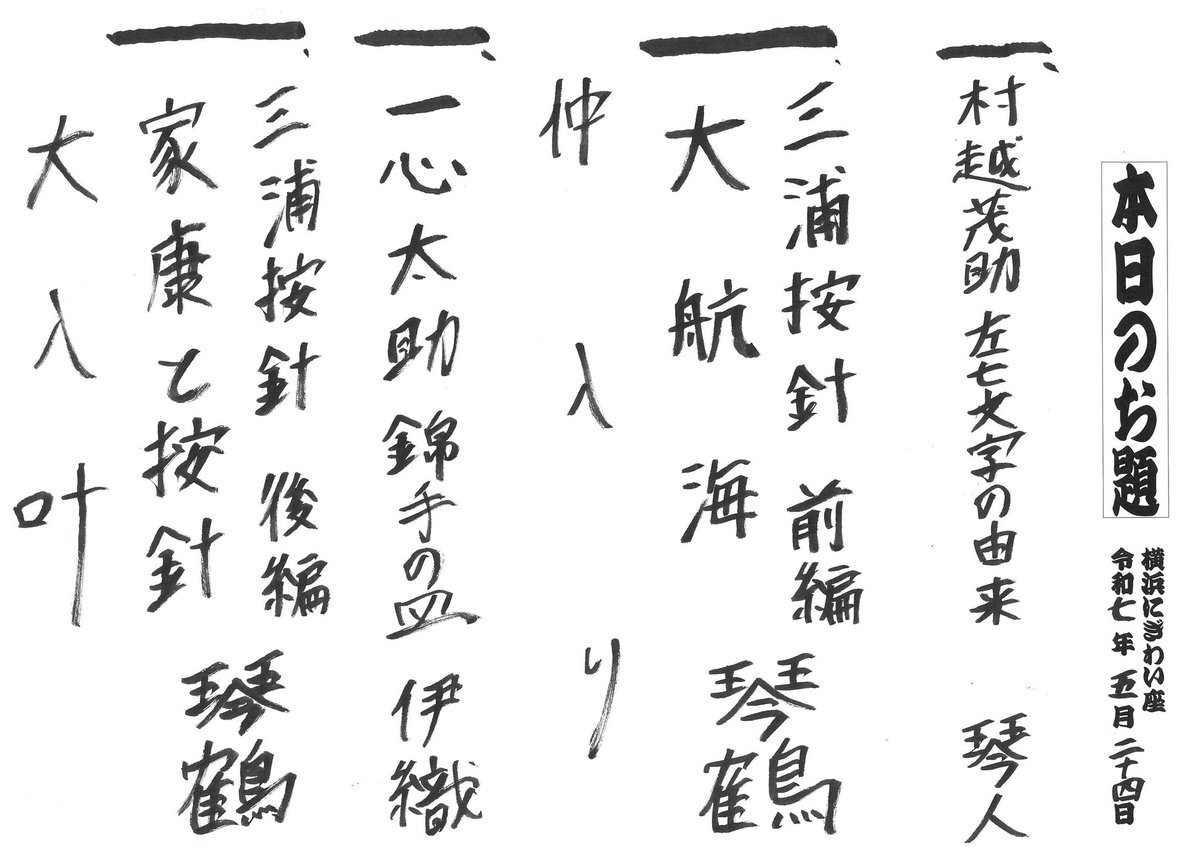 本日のお題
横浜にぎわい座
令和七年 五月 二十四日
一、村越茂助 左七文字の由来 琴人
一、三浦按針 前編
大航海 琴鶴
仲入り
一、一心太助 錦手の皿 伊織
一、三浦按針 後編
家康と按針 琴鶴
大入叶